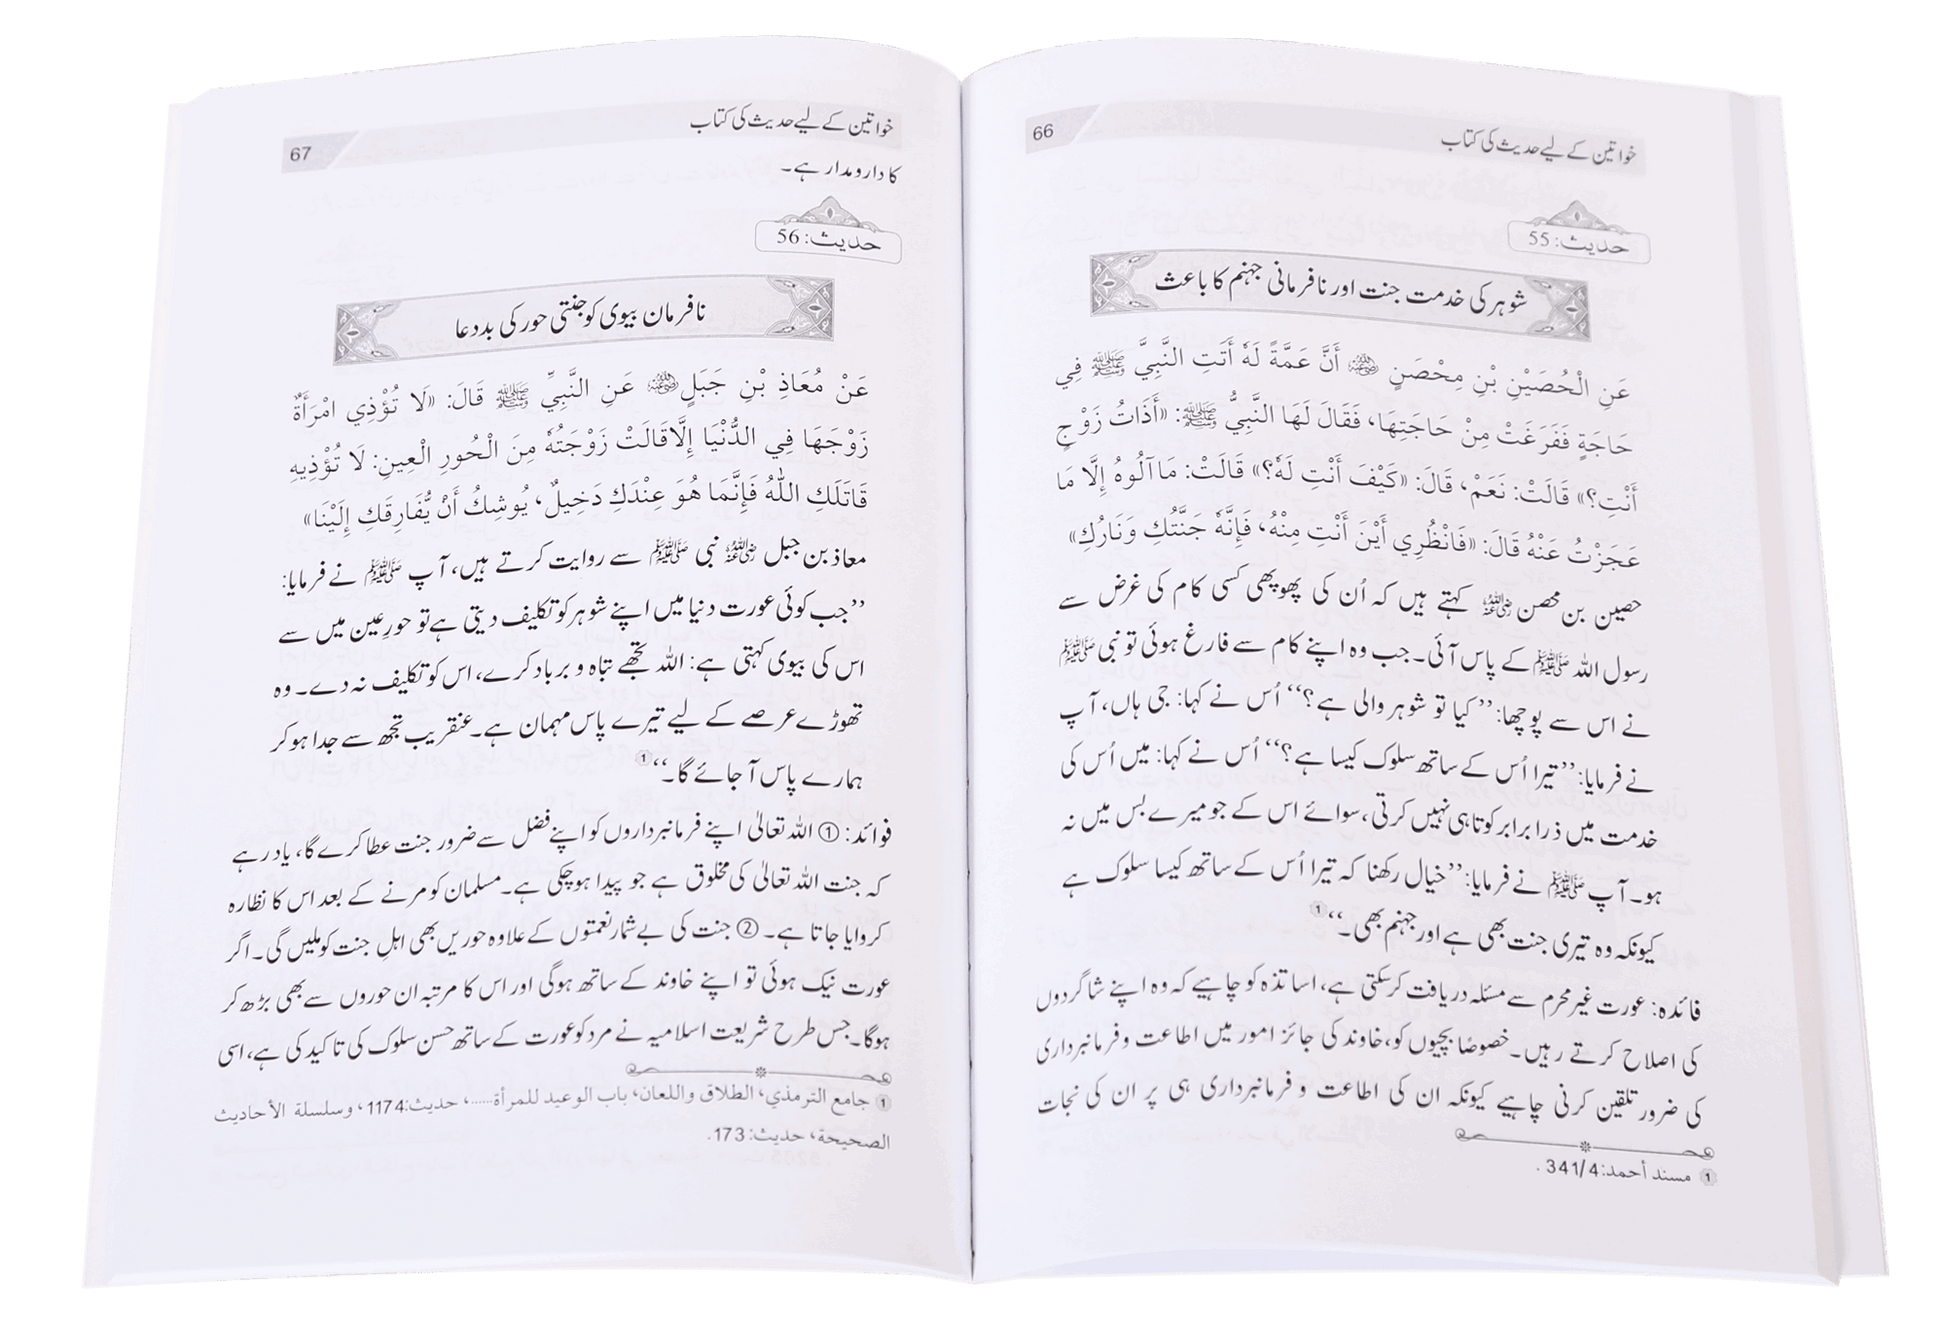 66
خواتین کے لیے حدیث کی کتاب
حدیث: 55
شوہر کی خدمت جنت اور نافرمانی جہنم کا باعث
عَنِ الْحُصَيْنِ بْنِ مِحْصَنٍ رضي الله عنه أَنَّ عَمَّةً لَهُ أَتَتِ النَّبِيَّ ﷺ فِي
حَاجَةٍ فَفَرَغَتْ مِنْ حَاجَتِهَا، فَقَالَ لَهَا النَّبِيُّ ﷺ: «أَذَاتُ زَوْجٍ
أَنْتِ؟» قَالَتْ: نَعَمْ، قَالَ: «كَيْفَ أَنْتِ لَهُ؟» قَالَتْ: مَا آلُوهُ إِلَّا مَا
عَجَزْتُ عَنْهُ قَالَ: «فَانْظُرِي أَيْنَ أَنْتِ مِنْهُ، فَإِنَّهُ جَنَّتُكِ وَنَارُكِ»
حصین بن محصن رضی اللہ عنہ کہتے ہیں کہ اُن کی پھوپھی کسی کام کی غرض سے
رسول اللہ ﷺ کے پاس آئی۔ جب وہ اپنے کام سے فارغ ہوئی تو نبی ﷺ
نے اس سے پوچھا: ’’کیا تو شوہر والی ہے؟‘‘ اُس نے کہا: جی ہاں، آپ
نے فرمایا: ’’تیرا اُس کے ساتھ سلوک کیسا ہے؟‘‘ اُس نے کہا: میں اُس کی
خدمت میں ذرا برابر کوتاہی نہیں کرتی، سوائے اس کے جو میرے بس میں نہ
ہو۔ آپ ﷺ نے فرمایا: ’’خیال رکھنا کہ تیرا اُس کے ساتھ کیسا سلوک ہے
کیونکہ وہ تیری جنت بھی ہے اور جہنم بھی۔‘‘ 1
فائدہ: عورت غیر محرم سے مسئلہ دریافت کر سکتی ہے، اساتذہ کو چاہیے کہ وہ اپنے شاگردوں
کی اصلاح کرتے رہیں۔ خصوصًا بچیوں کو، خاوند کی جائز امور میں اطاعت و فرمانبرداری
کی ضرور تلقین کرنی چاہیے کیونکہ ان کی اطاعت و فرمانبرداری ہی پر ان کی نجات
1 مسند أحمد: 341/4 .
خواتین کے لیے حدیث کی کتاب
67
کا دارومدار ہے۔
حدیث: 56
نافرمان بیوی کو جنتی حور کی بددعا
عَنْ مُعَاذِ بْنِ جَبَلٍ رضي الله عنه عَنِ النَّبِيِّ ﷺ قَالَ: «لَا تُؤْذِي امْرَأَةٌ
زَوْجَهَا فِي الدُّنْيَا إِلَّا قَالَتْ زَوْجَتُهُ مِنَ الْحُورِ الْعِينِ: لَا تُؤْذِيهِ
قَاتَلَكِ اللّٰهُ فَإِنَّمَا هُوَ عِنْدَكِ دَخِيلٌ، يُوشِكُ أَنْ يُّفَارِقَكِ إِلَيْنَا»
معاذ بن جبل رضی اللہ عنہ نبی ﷺ سے روایت کرتے ہیں، آپ ﷺ نے فرمایا:
’’جب کوئی عورت دنیا میں اپنے شوہر کو تکلیف دیتی ہے تو حورِ عین میں سے
اس کی بیوی کہتی ہے: اللہ تجھے تباہ و برباد کرے، اس کو تکلیف نہ دے۔ وہ
تھوڑے عرصے کے لیے تیرے پاس مہمان ہے۔ عنقریب تجھ سے جدا ہو کر
ہمارے پاس آ جائے گا۔‘‘ 1
فوائد: ① اللہ تعالیٰ اپنے فرمانبرداروں کو اپنے فضل سے ضرور جنت عطا کرے گا، یاد رہے
کہ جنت اللہ تعالیٰ کی مخلوق ہے جو پیدا ہو چکی ہے۔ مسلمان کو مرنے کے بعد اس کا نظارہ
کروایا جاتا ہے۔ ② جنت کی بے شمار نعمتوں کے علاوہ حوریں بھی اہلِ جنت کو ملیں گی۔ اگر
عورت نیک ہوئی تو اپنے خاوند کے ساتھ ہوگی اور اس کا مرتبہ ان حوروں سے بھی بڑھ کر
ہوگا۔ جس طرح شریعت اسلامیہ نے مرد کو عورت کے ساتھ حسن سلوک کی تاکید کی ہے، اسی
1 جامع الترمذي، الطلاق واللعان، باب الوعيد للمرأة......، حديث: 1174، وسلسلة الأحاديث
الصحيحة، حديث: 173.